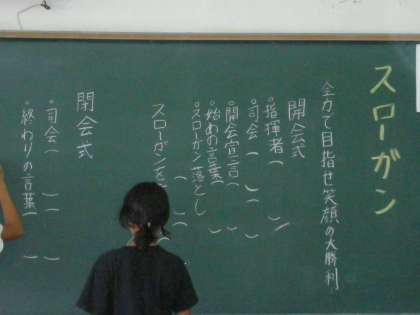 スローガン
全力で目指せ笑顔の大勝利
開会式
◦指揮者( )
◦司会( )( )
◦開会宣言( )
◦始めの言葉( )
◦スローガン落とし
スローガンを( )( )
閉会式
◦司会( )( )
◦終わりの言葉( )